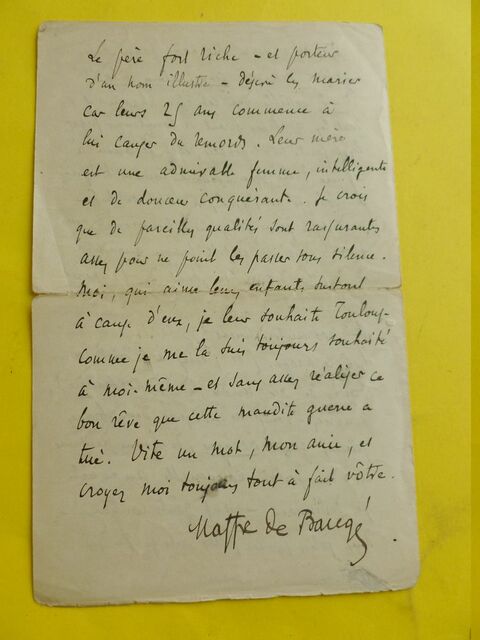 Le père fort riche – et porteur
d'un nom illustre – désire les marier
car leurs 25 ans commence à
lui causer du remords. Leur mère
est une admirable femme, intelligente
et de douceur conquérante. Je crois
que de pareilles qualités sont rassurantes
assez pour ne point les passer sous silence.
Moi, qui aime leurs enfants surtout
à cause d'eux, je leur souhaite Toulouse
comme je me la suis toujours souhaité
à moi-même – et sans assez réaliser ce
bon rêve que cette maudite guerre a
tué. Vite un mot, mon ami, et
croyez moi toujours tout à fait vôtre.
Maffre de Baugé.